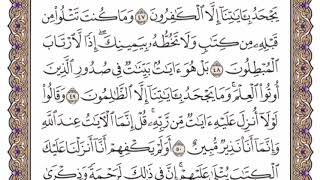 يَجْحَدُ بِـَٔايَٰتِنَآ إِلَّا ٱلْكَٰفِرُونَ ٤٧ وَمَا كُنتَ تَتْلُوا۟ مِن
قَبْلِهِۦ مِن كِتَٰبٍ وَلَا تَخُطُّهُۥ بِيَمِينِكَ ۖ إِذًا لَّٱرْتَابَ
ٱلْمُبْطِلُونَ ٤٨ بَلْ هُوَ ءَايَٰتٌۢ بَيِّنَٰتٌ فِى صُدُورِ ٱلَّذِينَ
أُوتُوا۟ ٱلْعِلْمَ ۚ وَمَا يَجْحَدُ بِـَٔايَٰتِنَآ إِلَّا ٱلظَّٰلِمُونَ ٤٩ وَقَالُوا۟
لَوْلَآ أُنزِلَ عَلَيْهِ ءَايَٰتٌ مِّن رَّبِّهِۦ ۖ قُلْ إِنَّمَا ٱلْـَٔايَٰتُ عِندَ ٱللَّهِ
وَإِنَّمَآ أَنَا۠ نَذِيرٌ مُّبِينٌ ٥٠ أَوَلَمْ يَكْفِهِمْ أَنَّآ أَنزَلْنَا عَلَيْكَ
ٱلْكِتَٰبَ يُتْلَىٰ عَلَيْهِمْ ۚ إِنَّ فِى ذَٰلِكَ لَرَحْمَةً وَذِكْرَىٰ